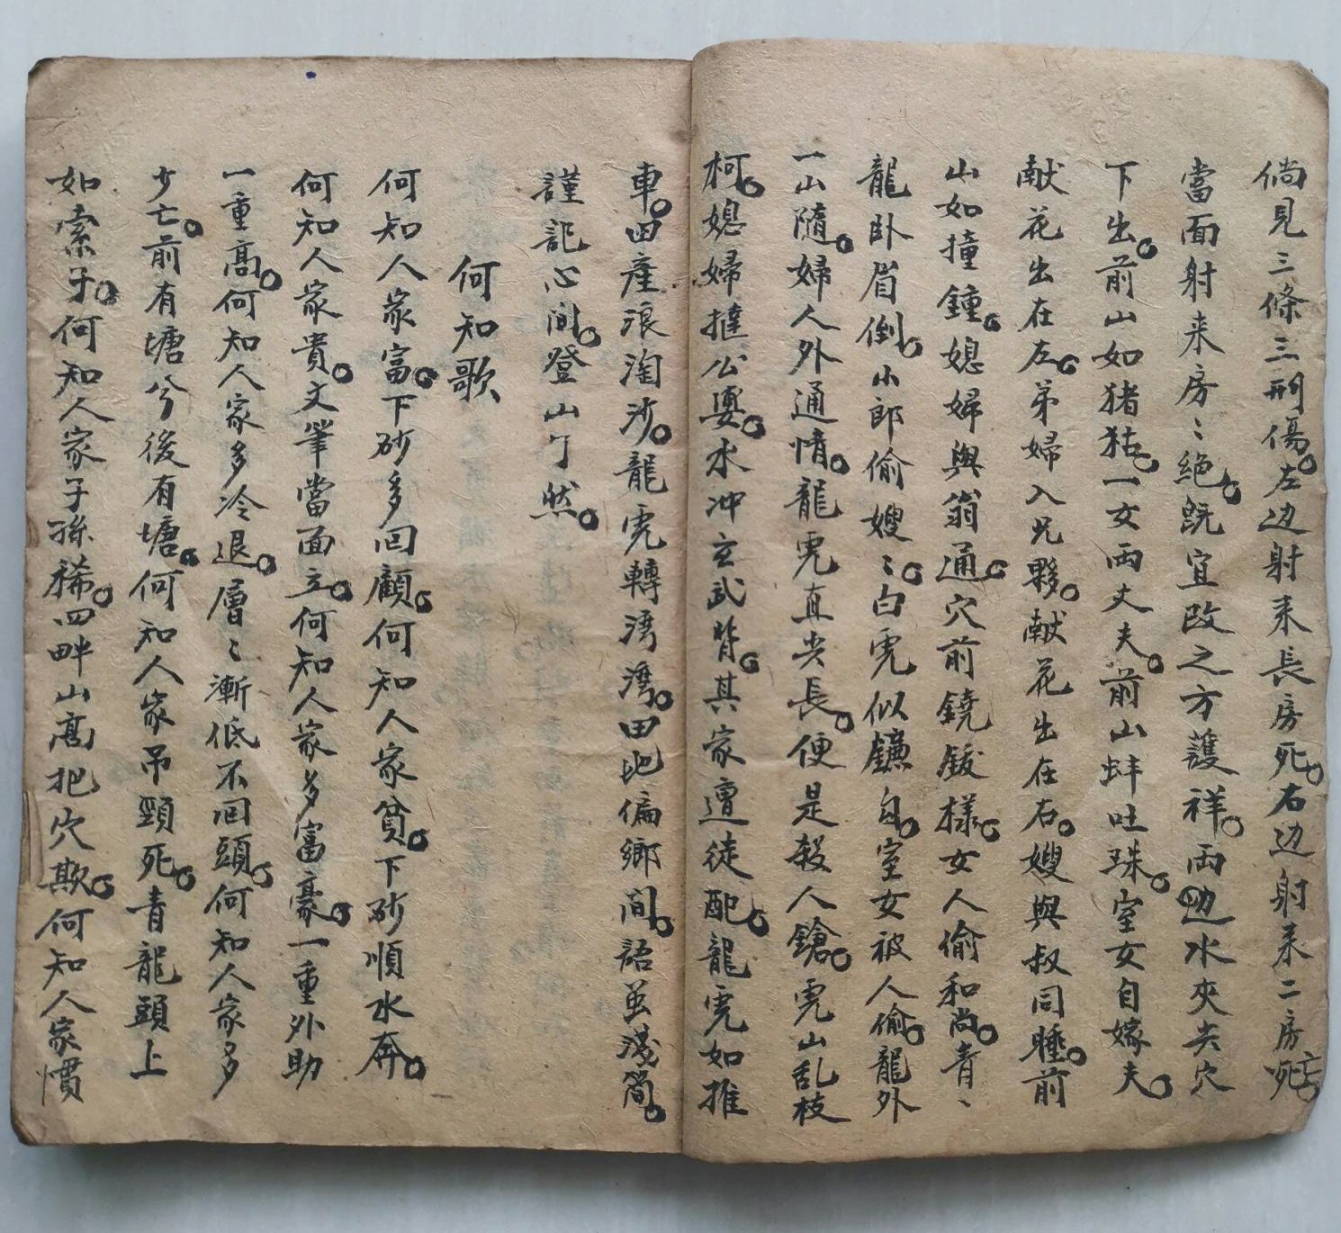 倘見三條三刑傷。左边射来長房死。右边射来二房亡。
當面射来房〻絶。既宜改之方護祥。両边水夾尖穴
下出。前山如猪牯。一女両丈夫。前山蚌吐珠。室女自嫁夫。
献花出在左。弟婦入兄夥。献花出在右。嫂與叔同睡。前
山如撞鍾。媳婦與翁通。穴前鐃鈸樣。女人偷和尚。青、
龍卧眉倒。小郎偷嫂〻。白虎似鐮自。室女被人偷。龍外
一山隨。婦人外通情。龍虎直尖長。便是殺人鎗。虎山乱枝
柯。媳婦撻公婆。水冲玄武背。其家遭徒配。龍虎如推
車。田產浪淘沙。龍虎轉湾湾。田地偏鄉間。語虽淺简。
謹記心间。登山了然。
何知歌
何知人家富。下砂多回顧。何知人家貧。下砂順水奔。
何知人家貴。文筆當面立。何知人家多富豪。一重外助
一重高。何知人家多冷退。層〻漸低不回頭。何知人家多
少亡。前有塘兮後有塘。何知人家吊頸死。青龍頭上
如索子。何知人家子孫稀。四畔山高把穴欺。何知人家慣